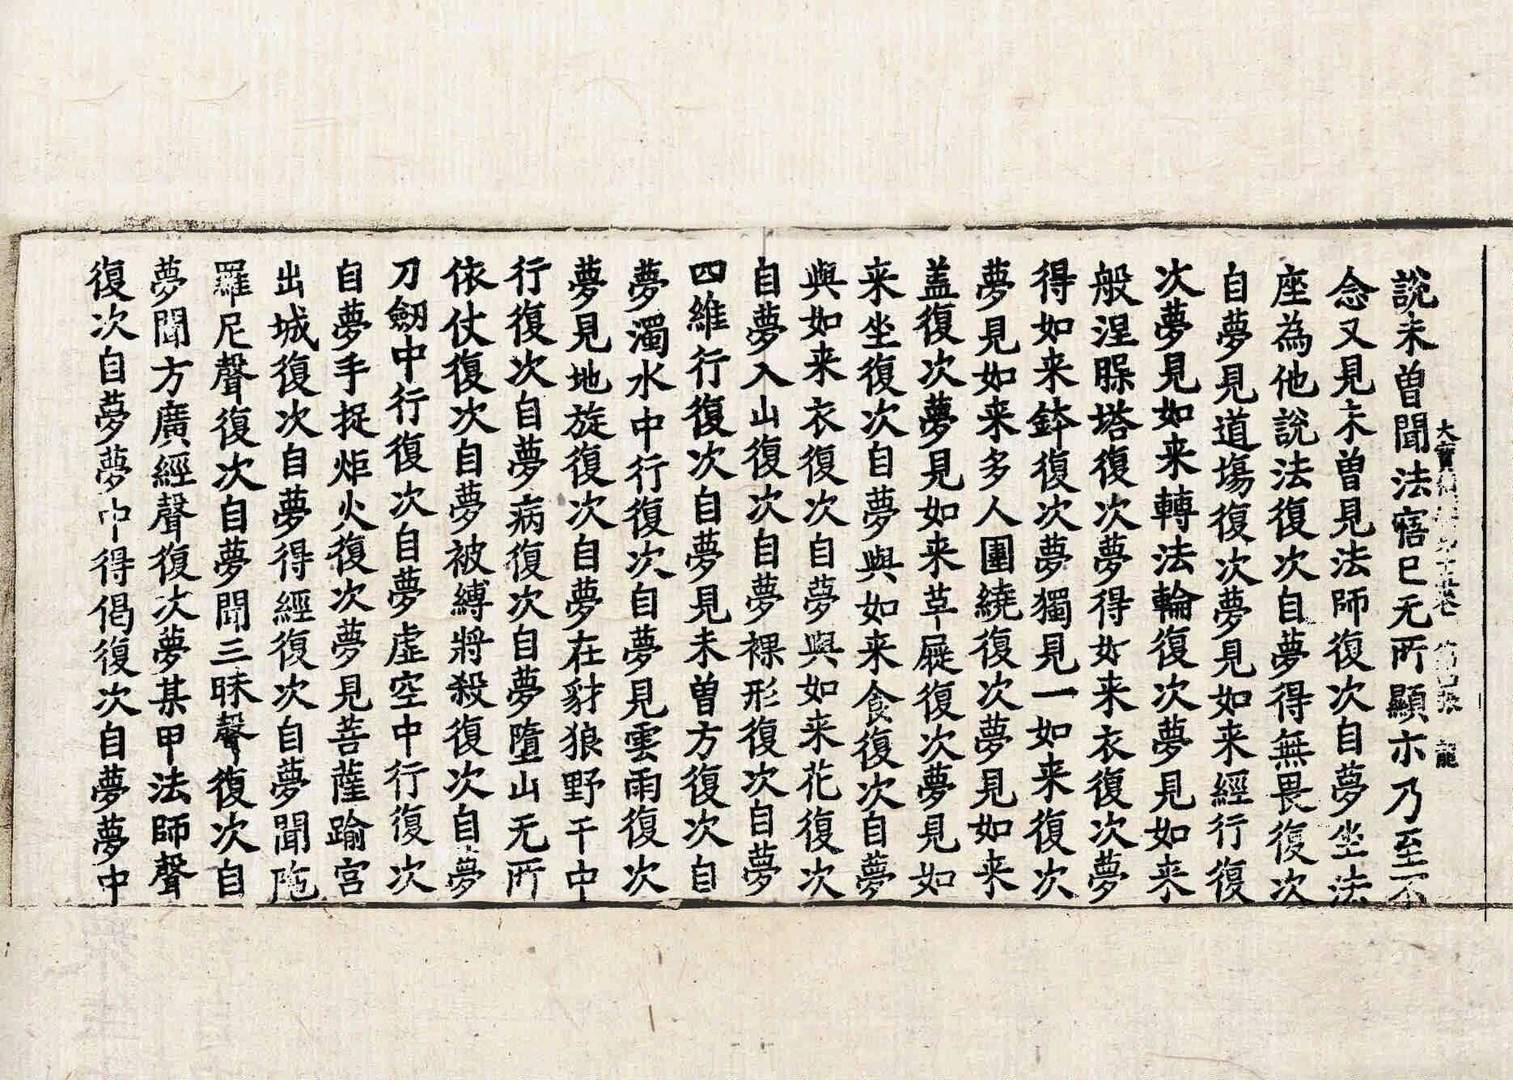 說未曾聞法寤已无所顯亦乃至不
大寶積經第十五卷 第四張 龍
念又見未曾見法師復次自夢坐法
座為他說法復次自夢得無畏復次
自夢見道塲復次夢見如来經行復
次夢見如来轉法輪復次夢見如来
般涅槃塔復次夢得如来衣復次夢
得如来鉢復次夢獨見一如来復次
夢見如来多人圍繞復次夢見如来
盖復次夢見如来草屣復次夢見如
来坐復次自夢與如来食復次自夢
與如来衣復次自夢與如来花復次
自夢入山復次自夢裸形復次自夢
四維行復次自夢見未曾方復次自
夢濁水中行復次自夢見雲雨復次
夢見地旋復次自夢在豺狼野干中
行復次自夢病復次自夢墮山无所
依仗復次自夢被縛將殺復次自夢
刀劒中行復次自夢虛空中行復次
自夢手捉炬火復次夢見菩薩踰宮
出城復次自夢得經復次自夢聞陁
羅尼聲復次自夢聞三昧聲復次自
夢聞方廣經聲復次夢某甲法師聲
復次自夢夢中得偈復次自夢夢中